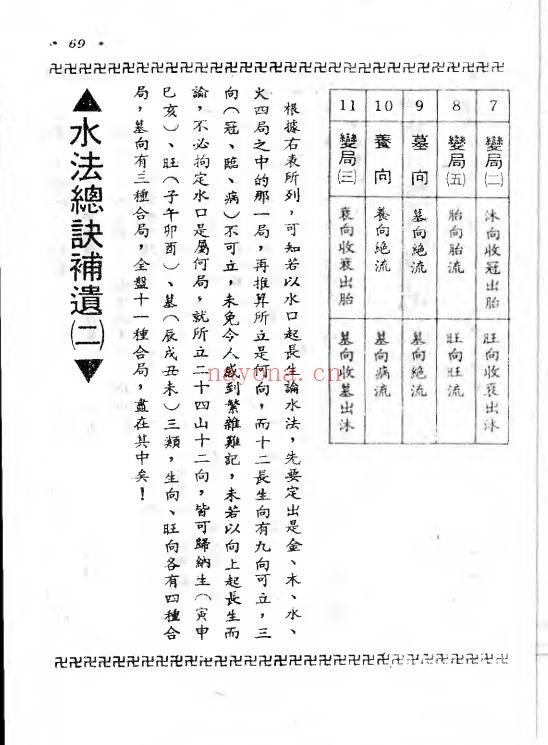 69
7
變局(二)
沐向收冠出胎
旺向收衰出沐
8
變局(五)
胎向胎流
旺向旺流
9
墓向
墓向絕流
墓向絕流
10
養向
養向絕流
墓向病流
11
變局(三)
衰向收衰出胎
墓向收墓出沐
根據右表所列，可知若以水口起長生論水法，先要定出是金、木、水、
火四局之中的那一局，再推算所立是何向，而十二長生向有九向可立，三
向（冠、臨、病）不可立，未免令人感到繁雜難記，未若以向上起長生而
論，不必拘定水口是屬何局，就所立二十四山十二向，皆可歸納生（寅申
巳亥）、旺（子午卯酉）、墓（辰戌丑未）三類，生向、旺向各有四種合
局，墓向有三種合局，全盤十一種合局，盡在其中矣！
▲水法總訣補遺(二)▼
nayona.cn